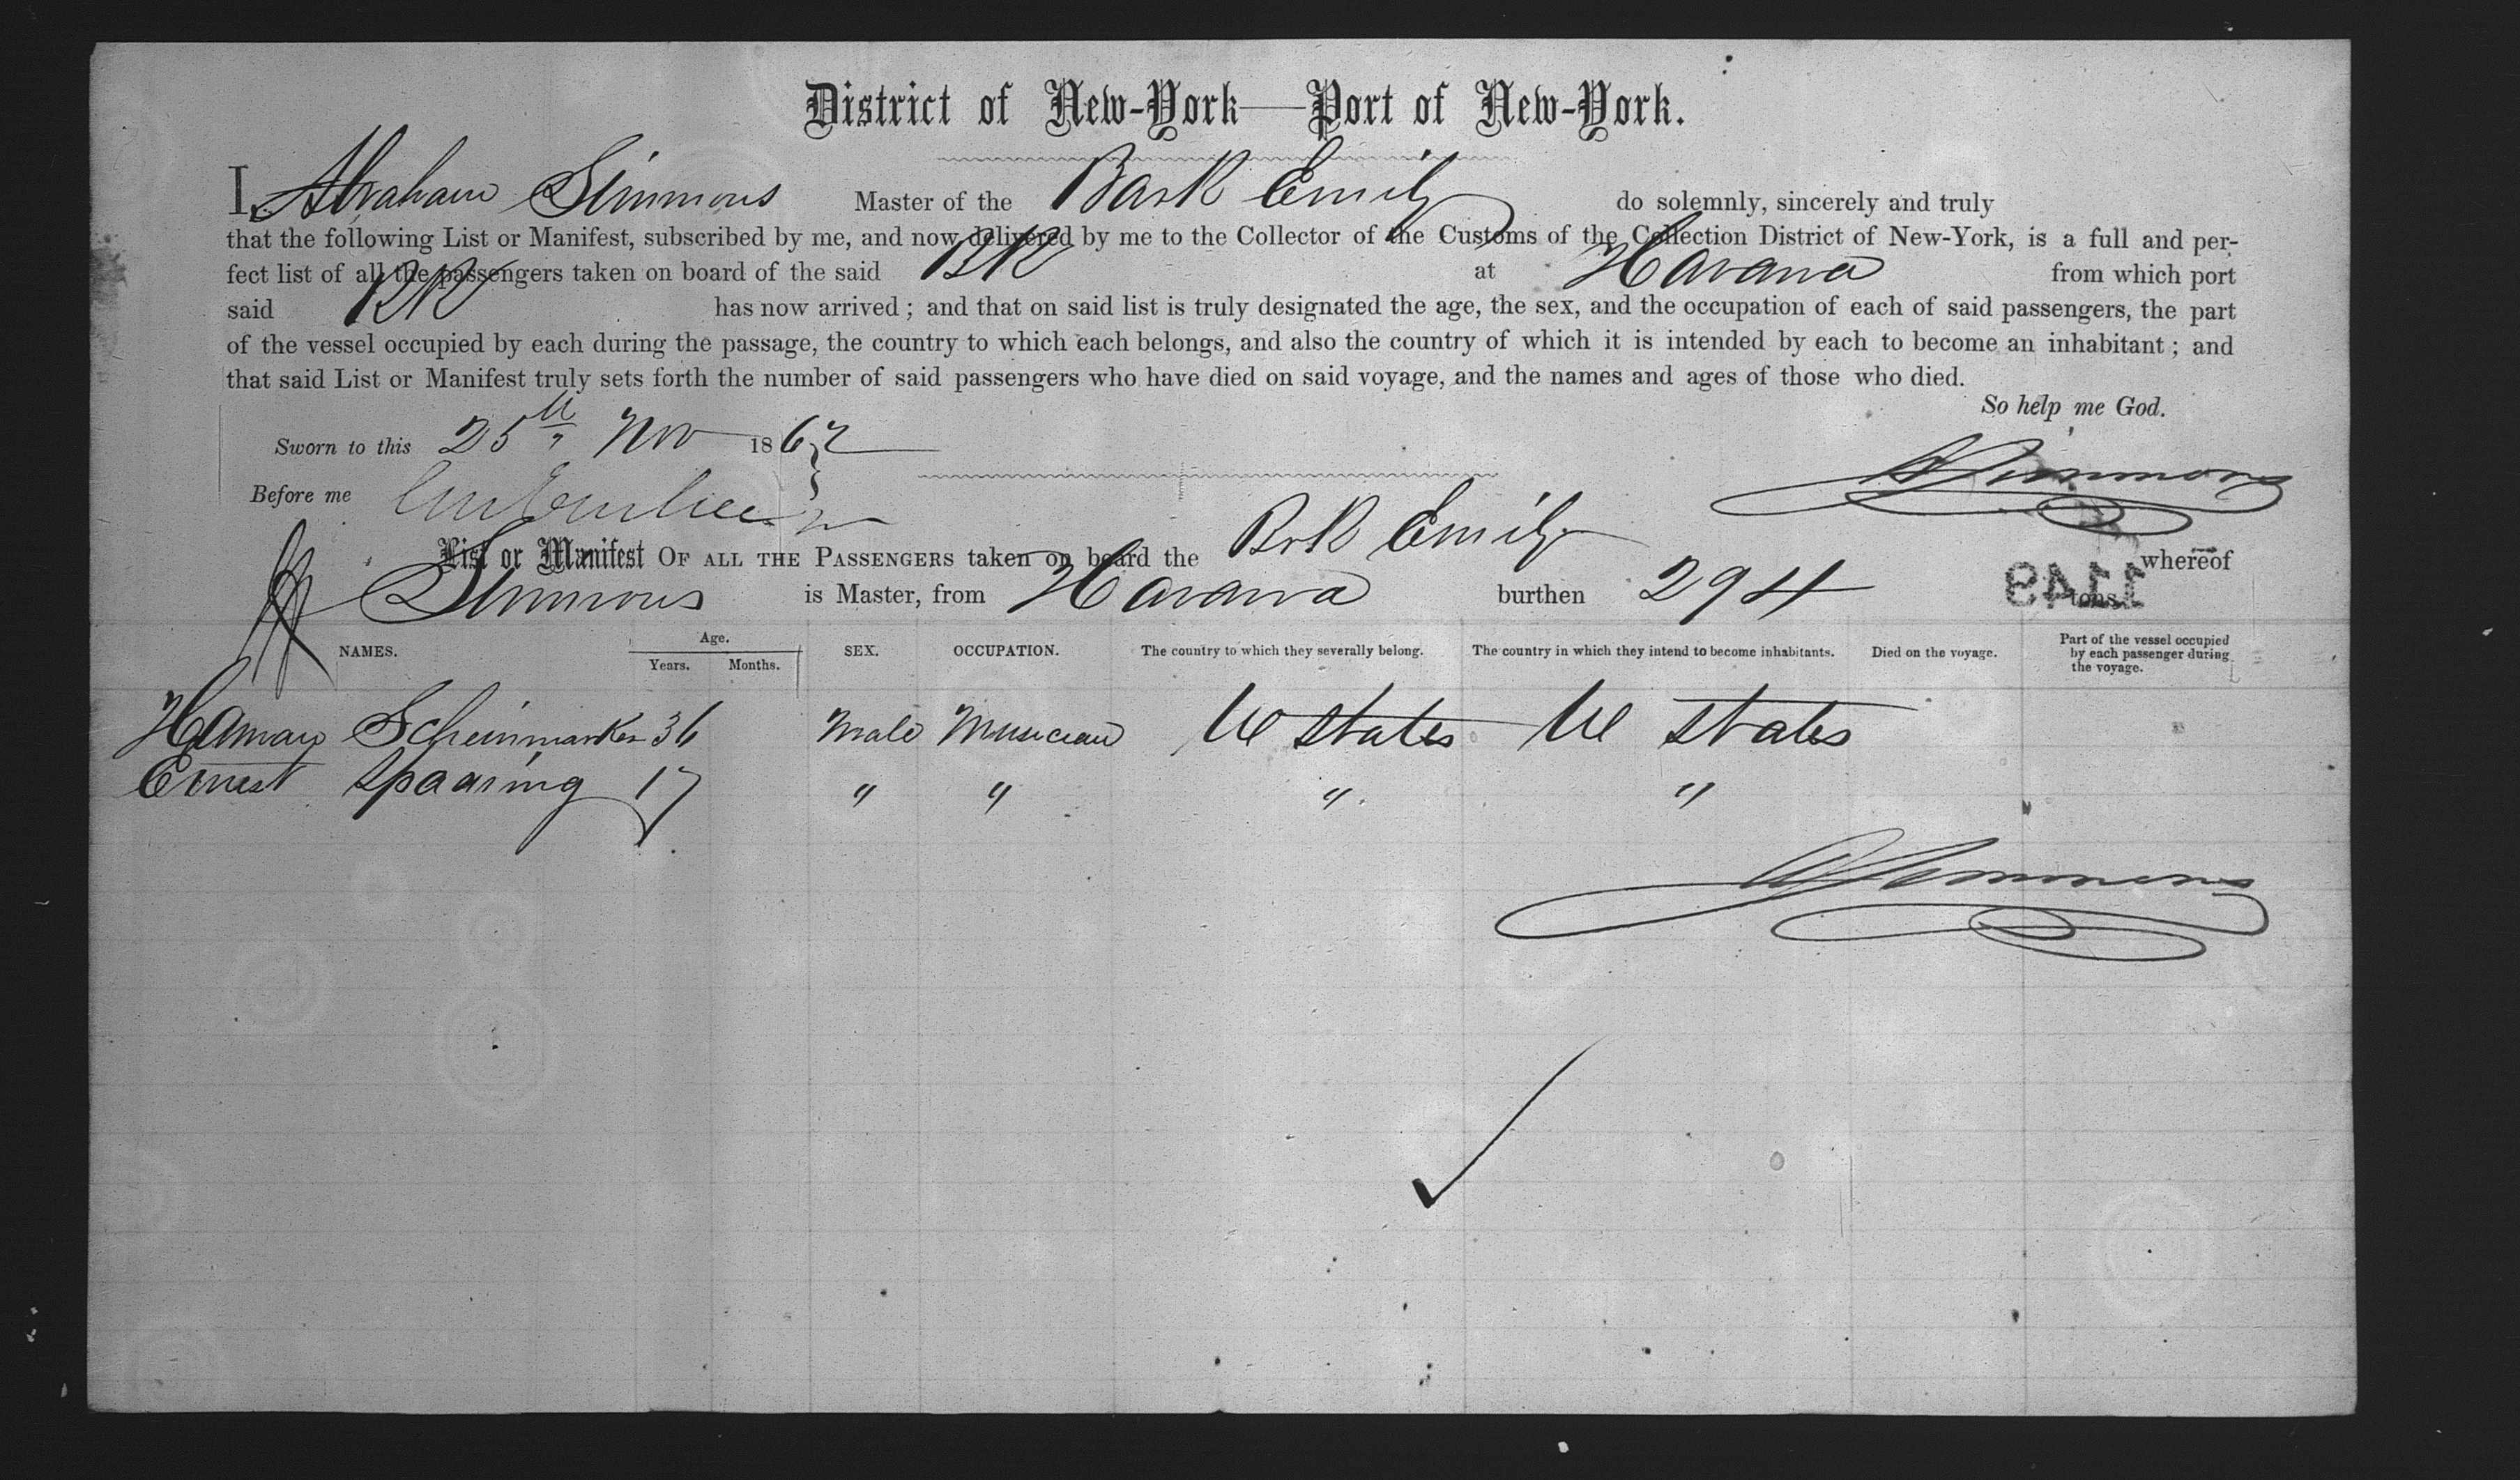 District of New-York—Port of New-York.
I, Abraham Simmons Master of the Bark Emily do solemnly, sincerely and truly
that the following List or Manifest, subscribed by me, and now delivered by me to the Collector of the Customs of the Collection District of New-York, is a full and per-
fect list of all the passengers taken on board of the said BK at Havana from which port
said BK has now arrived; and that on said list is truly designated the age, the sex, and the occupation of each of said passengers, the part
of the vessel occupied by each during the passage, the country to which each belongs, and also the country of which it is intended by each to become an inhabitant; and
that said List or Manifest truly sets forth the number of said passengers who have died on said voyage, and the names and ages of those who died.
So help me God.
Sworn to this 25th Nov 1862
A Simmons
Before me
List or Manifest OF ALL THE PASSENGERS taken on board the Brk Emily whereof
Simmons is Master, from Havana burthen 294 tons.
1149
NAMES. Age. Years. Months. SEX. OCCUPATION. The country to which they severally belong. The country in which they intend to become inhabitants. Died on the voyage. Part of the vessel occupied by each passenger during the voyage.
Haman Scheinmarker 36 Male Musician U States U States
Ernest Spaaring 17 " " " "
A Simmons